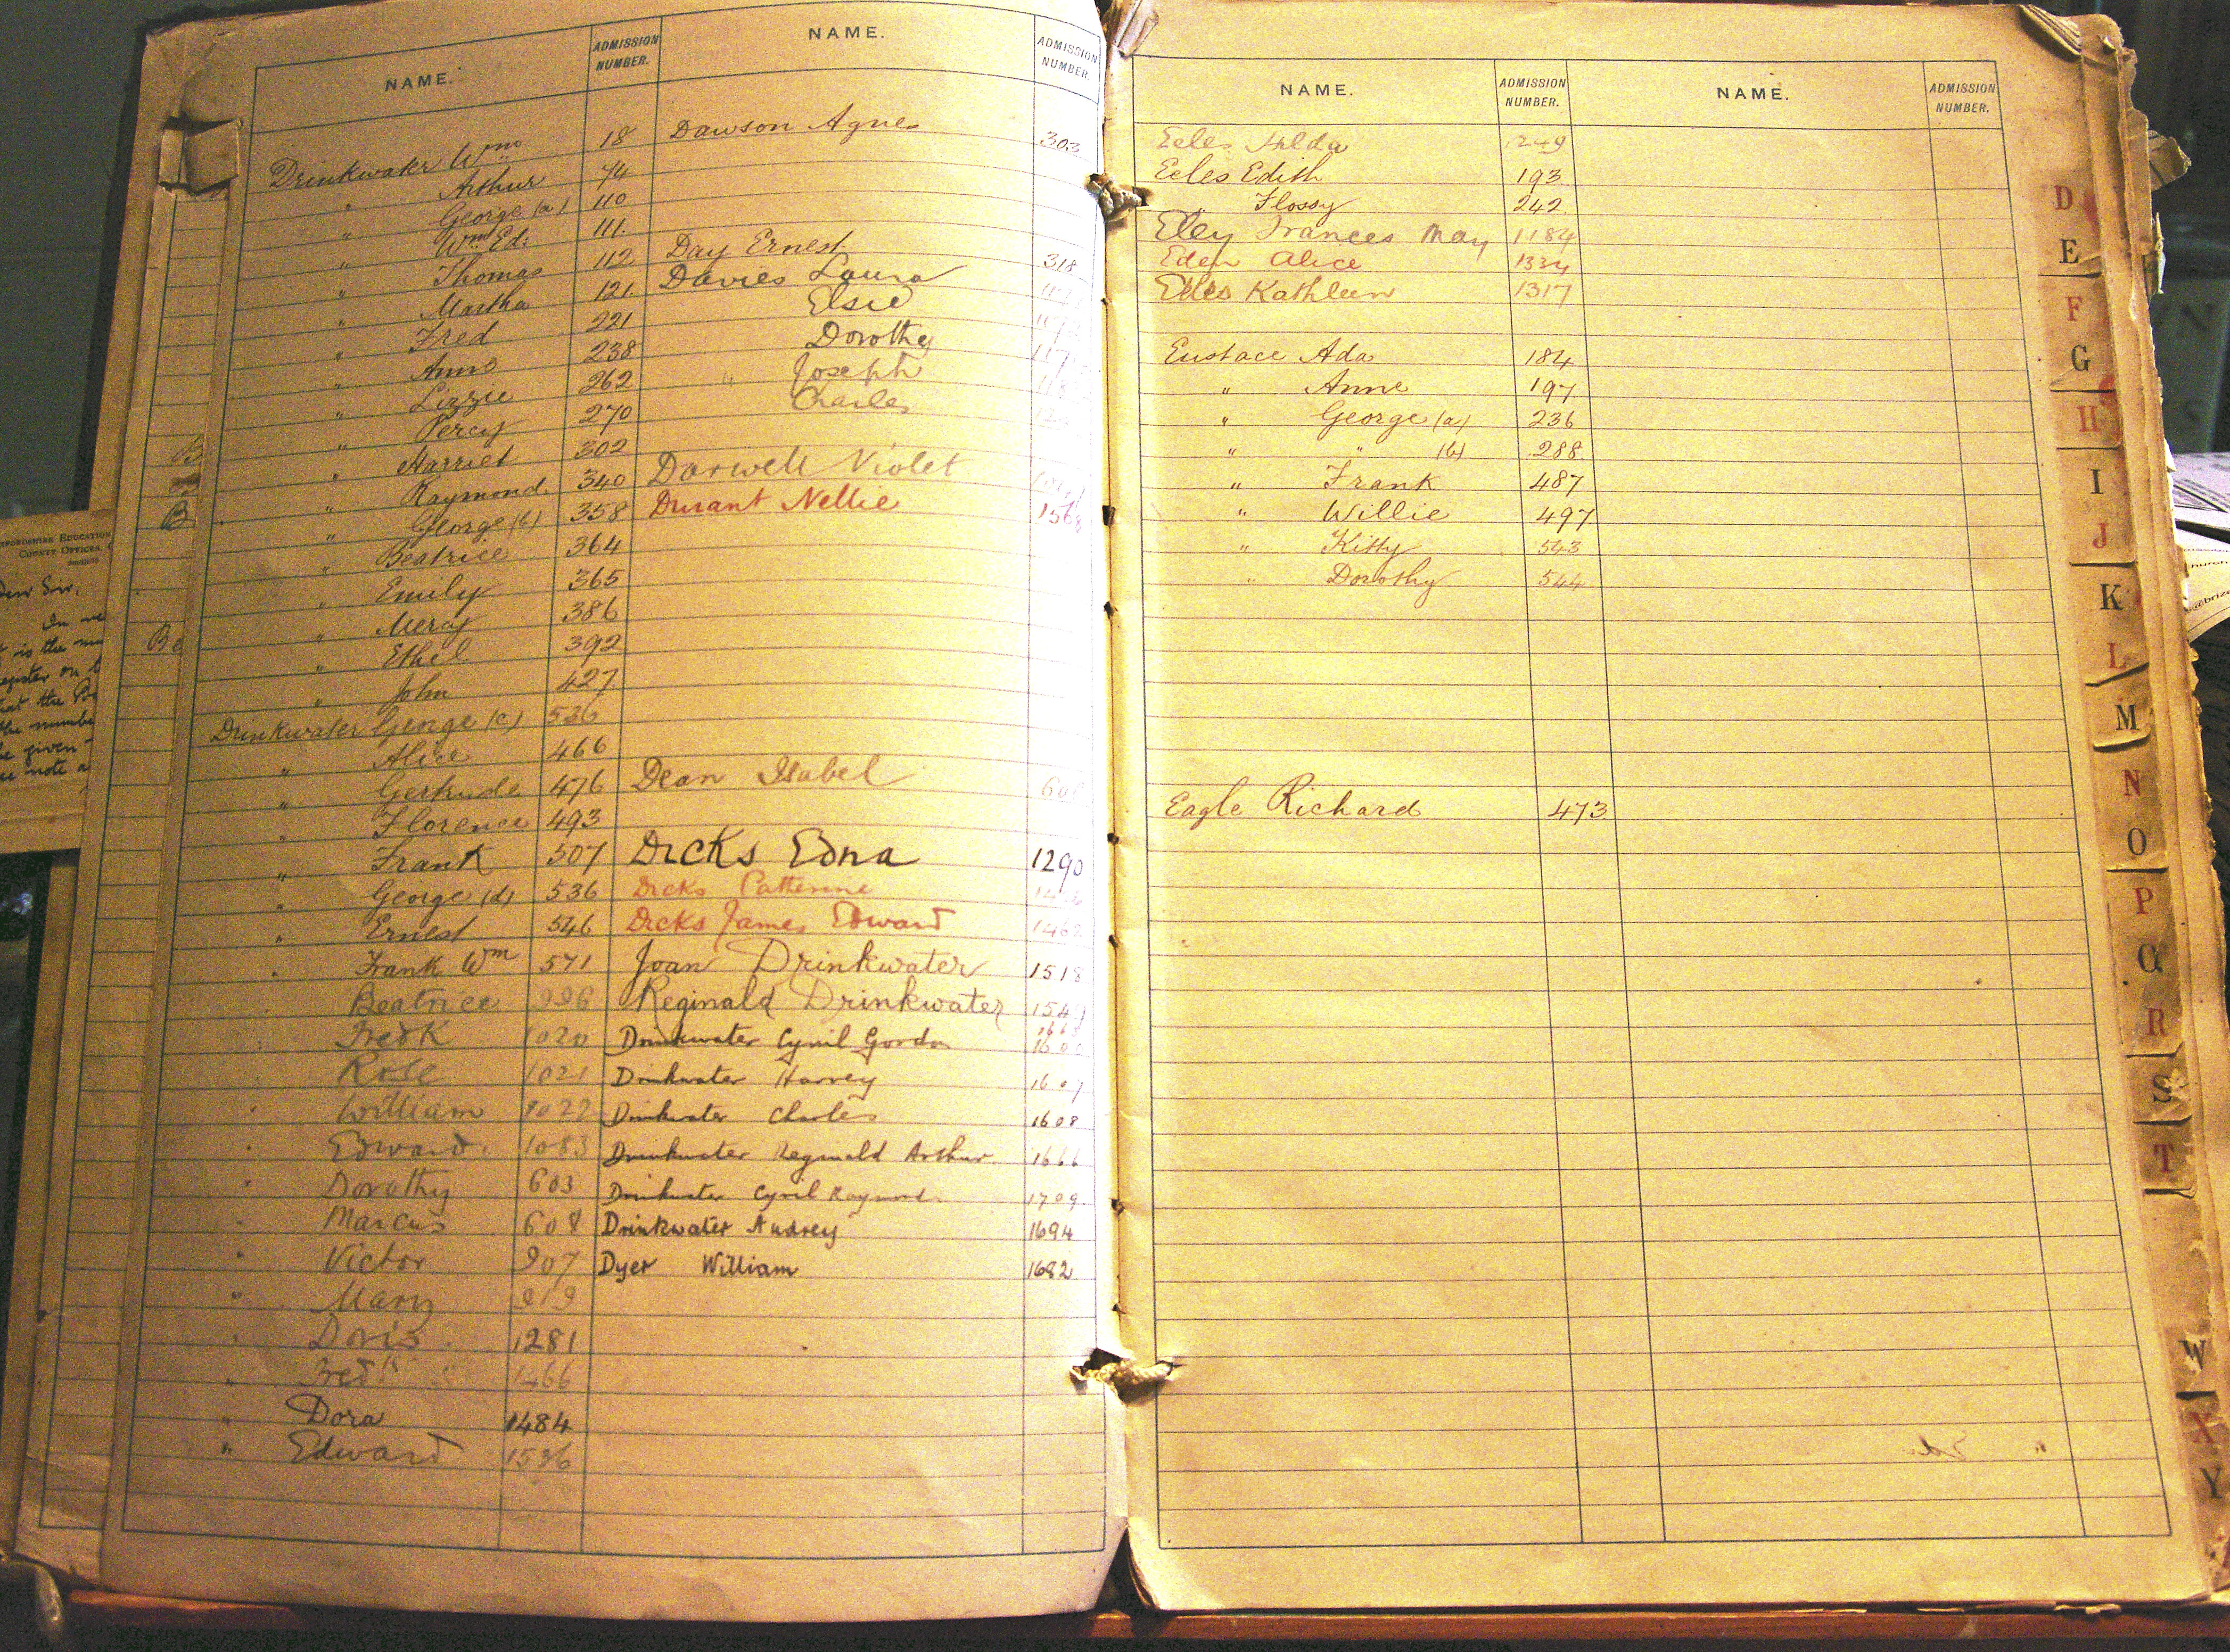 NAME. ADMISSION NUMBER.
Drinkwater Wm 18
" Arthur 74
" George (a) 110
" Wm Ed. 111.
" Thomas 112
" Martha 121.
" Fred 221
" Anne 238
" Lizzie 262
" Percy 270
" Harriet 302
" Raymond. 340
" George (b) 358
" Beatrice 364
" Emily 365
" Mercy 386
" Ethel. 392
" John 427
Drinkwater George (c) 536
" Alice 466
" Gertrude 476
" Florence 493
" Frank 507
" George (d) 536
" Ernest 546
" Frank Wm 571
Beatrice
" Fredk 1020
" Rose 1021
" William 1022
" Edward. 1083
" Dorothy 603
" Marcus 608
" Victor 907
" Mary
" Doris. 1281
" Fredk 1466
" Dora 1484
" Edward 1536
NAME. ADMISSION NUMBER.
Dawson Agnes 303
Day Ernest 318
Davies Laura
Elsie
Dorothy
" Joseph
Charles
Darwell Violet
Durant Nellie 1568
Dean Isabel
Dicks Edna 1290
Dicks Catherine
Dicks James Edward 1462
Joan Drinkwater 1518
Reginald Drinkwater 1549
Drinkwater Cyril Gordon
Drinkwater Harvey 1607
Drinkwater Charles 1608
Drinkwater Reginald Arthur. 1666
Drinkwater Cyril Raymond 1709
Drinkwater Audrey 1694
Dyer William 1682
NAME. ADMISSION NUMBER. NAME. ADMISSION NUMBER.
Eeles Hilda 1249
Eeles Edith 193
" Flossy 242
Eley Frances May 1184
Eden Alice 1334
Eeles Kathleen 1317
Eustace Ada 184
" Anne 197
" George (a) 236
" " (b) 288.
" Frank 487
" Willie 497
" Kitty 543
" Dorothy 544
Eagle Richard 473
D
E
F
G
H
I
J
K
L
M
N
O
P
Q
R
S
T
W
X
Y
EDUCATION
COUNTY OFFICES,
Dear Sir,
is the
register on
that the
the number
given
note